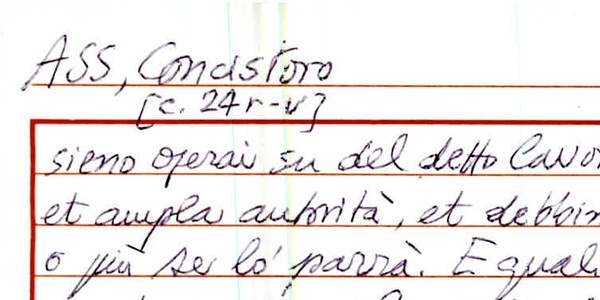 ASS, Concistoro
[c. 24r-v]
sieno operai su del detto lavo
et ampla autorità, et debbin
o più se lo' parrà. E quali